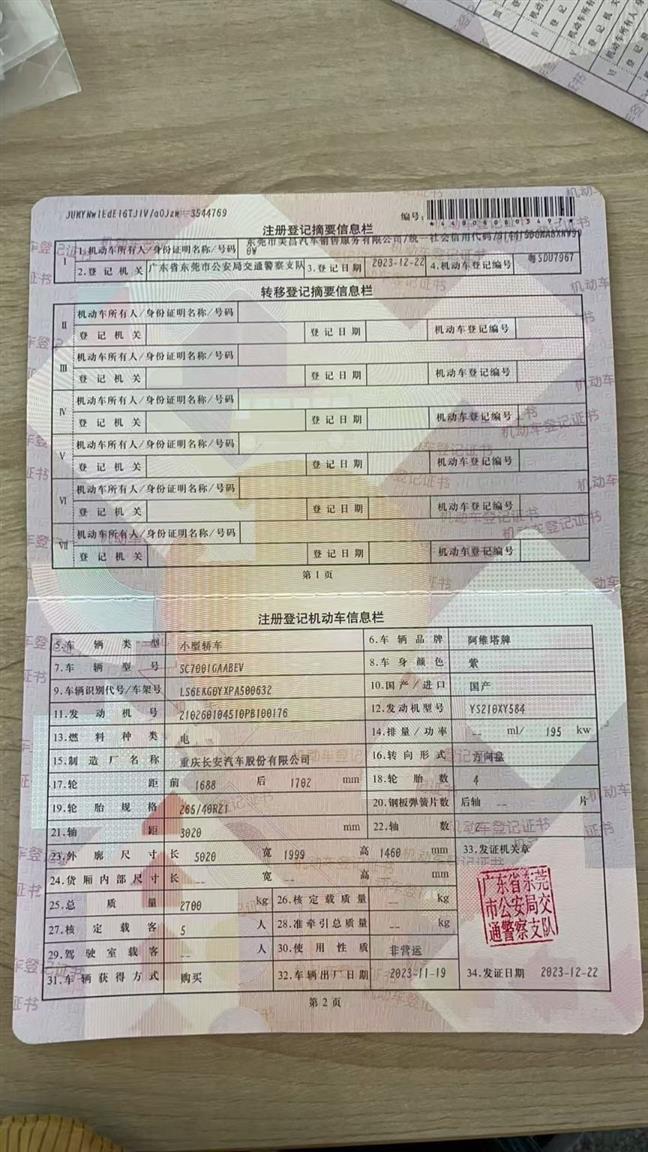 3544769
编号:
注册登记摘要信息栏
I 1.机动车所有人/身份证明名称/号码 东莞市美昌汽车销售服务有限公司/统一社会信用代码/
2.登记机关 广东省东莞市公安局交通警察支队 3.登记日期 2023-12-22 4.机动车登记编号 粤SDU7967
转移登记摘要信息栏
II 机动车所有人/身份证明名称/号码
登记机关 登记日期 机动车登记编号
III 机动车所有人/身份证明名称/号码
登记机关 登记日期 机动车登记编号
IV 机动车所有人/身份证明名称/号码
登记机关 登记日期 机动车登记编号
V 机动车所有人/身份证明名称/号码
登记机关 登记日期 机动车登记编号
VI 机动车所有人/身份证明名称/号码
登记机关 登记日期 机动车登记编号
VII 机动车所有人/身份证明名称/号码
登记机关 登记日期 机动车登记编号
第1页
注册登记机动车信息栏
5.车辆类型 小型轿车 6.车辆品牌 阿维塔牌
7.车辆型号 SC7001GAABEV 8.车身颜色 紫
9.车辆识别代号/车架号 LS6EKG0YXPA500632 10.国产/进口 国产
11.发动机号 210260104510PB100176 12.发动机型号 YS210XY584
13.燃料种类 电 14.排量/功率 -- ml/ 195 kw
15.制造厂名称 重庆长安汽车股份有限公司 16.转向形式 方向盘
17.轮距 前 1688 后 1702 mm 18.轮胎数 4
19.轮胎规格 265/40R21 20.钢板弹簧片数 后轴 -- 片
21.轴距 3020 mm 22.轴数 2
23.外廓尺寸 长 5020 宽 1999 高 1460 mm 33.发证机关章
24.货厢内部尺寸 长 -- 宽 -- 高 -- mm
25.总质量 2700 kg 26.核定载质量 -- kg
27.核定载客 5 人 28.准牵引总质量 -- kg
广东省东莞
市公安局交
通警察支队
29.驾驶室载客 -- 人 30.使用性质 非营运
31.车辆获得方式 购买 32.车辆出厂日期 2023-11-19 34.发证日期 2023-12-22
第2页